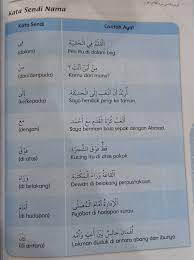 Kata Sendi Nama
Kata Sendi
Contoh Ayat
فِي
(dalam)
القَلَمُ فِي الحَقِيْبَةِ
Pen itu di dalam beg.
مِنْ
(dari/daripada)
مِنْ أَيْنَ أَنْتَ؟
Kamu dari mana?
إِلَى
(ke/kepada)
أُرِيْدُ أَنْ أَذْهَبَ إِلَى الحَدِيْقَةِ
Saya hendak pergi ke taman.
مَعَ
(dengan)
أَلْعَبُ كُرَةَ القَدَمِ مَعَ أَحْمَد
Saya bermain bola sepak dengan Ahmad.
فَوْقَ
(di atas)
Kucing itu di atas pokok
وَرَاءَ
(di belakang)
Dewan di belakang perpustakaan.
أَمَامَ
(di hadapan)
Pejabat di hadapan surau.
بَيْنَ
(di antara)
Lokman duduk di antara abang dan ibunya